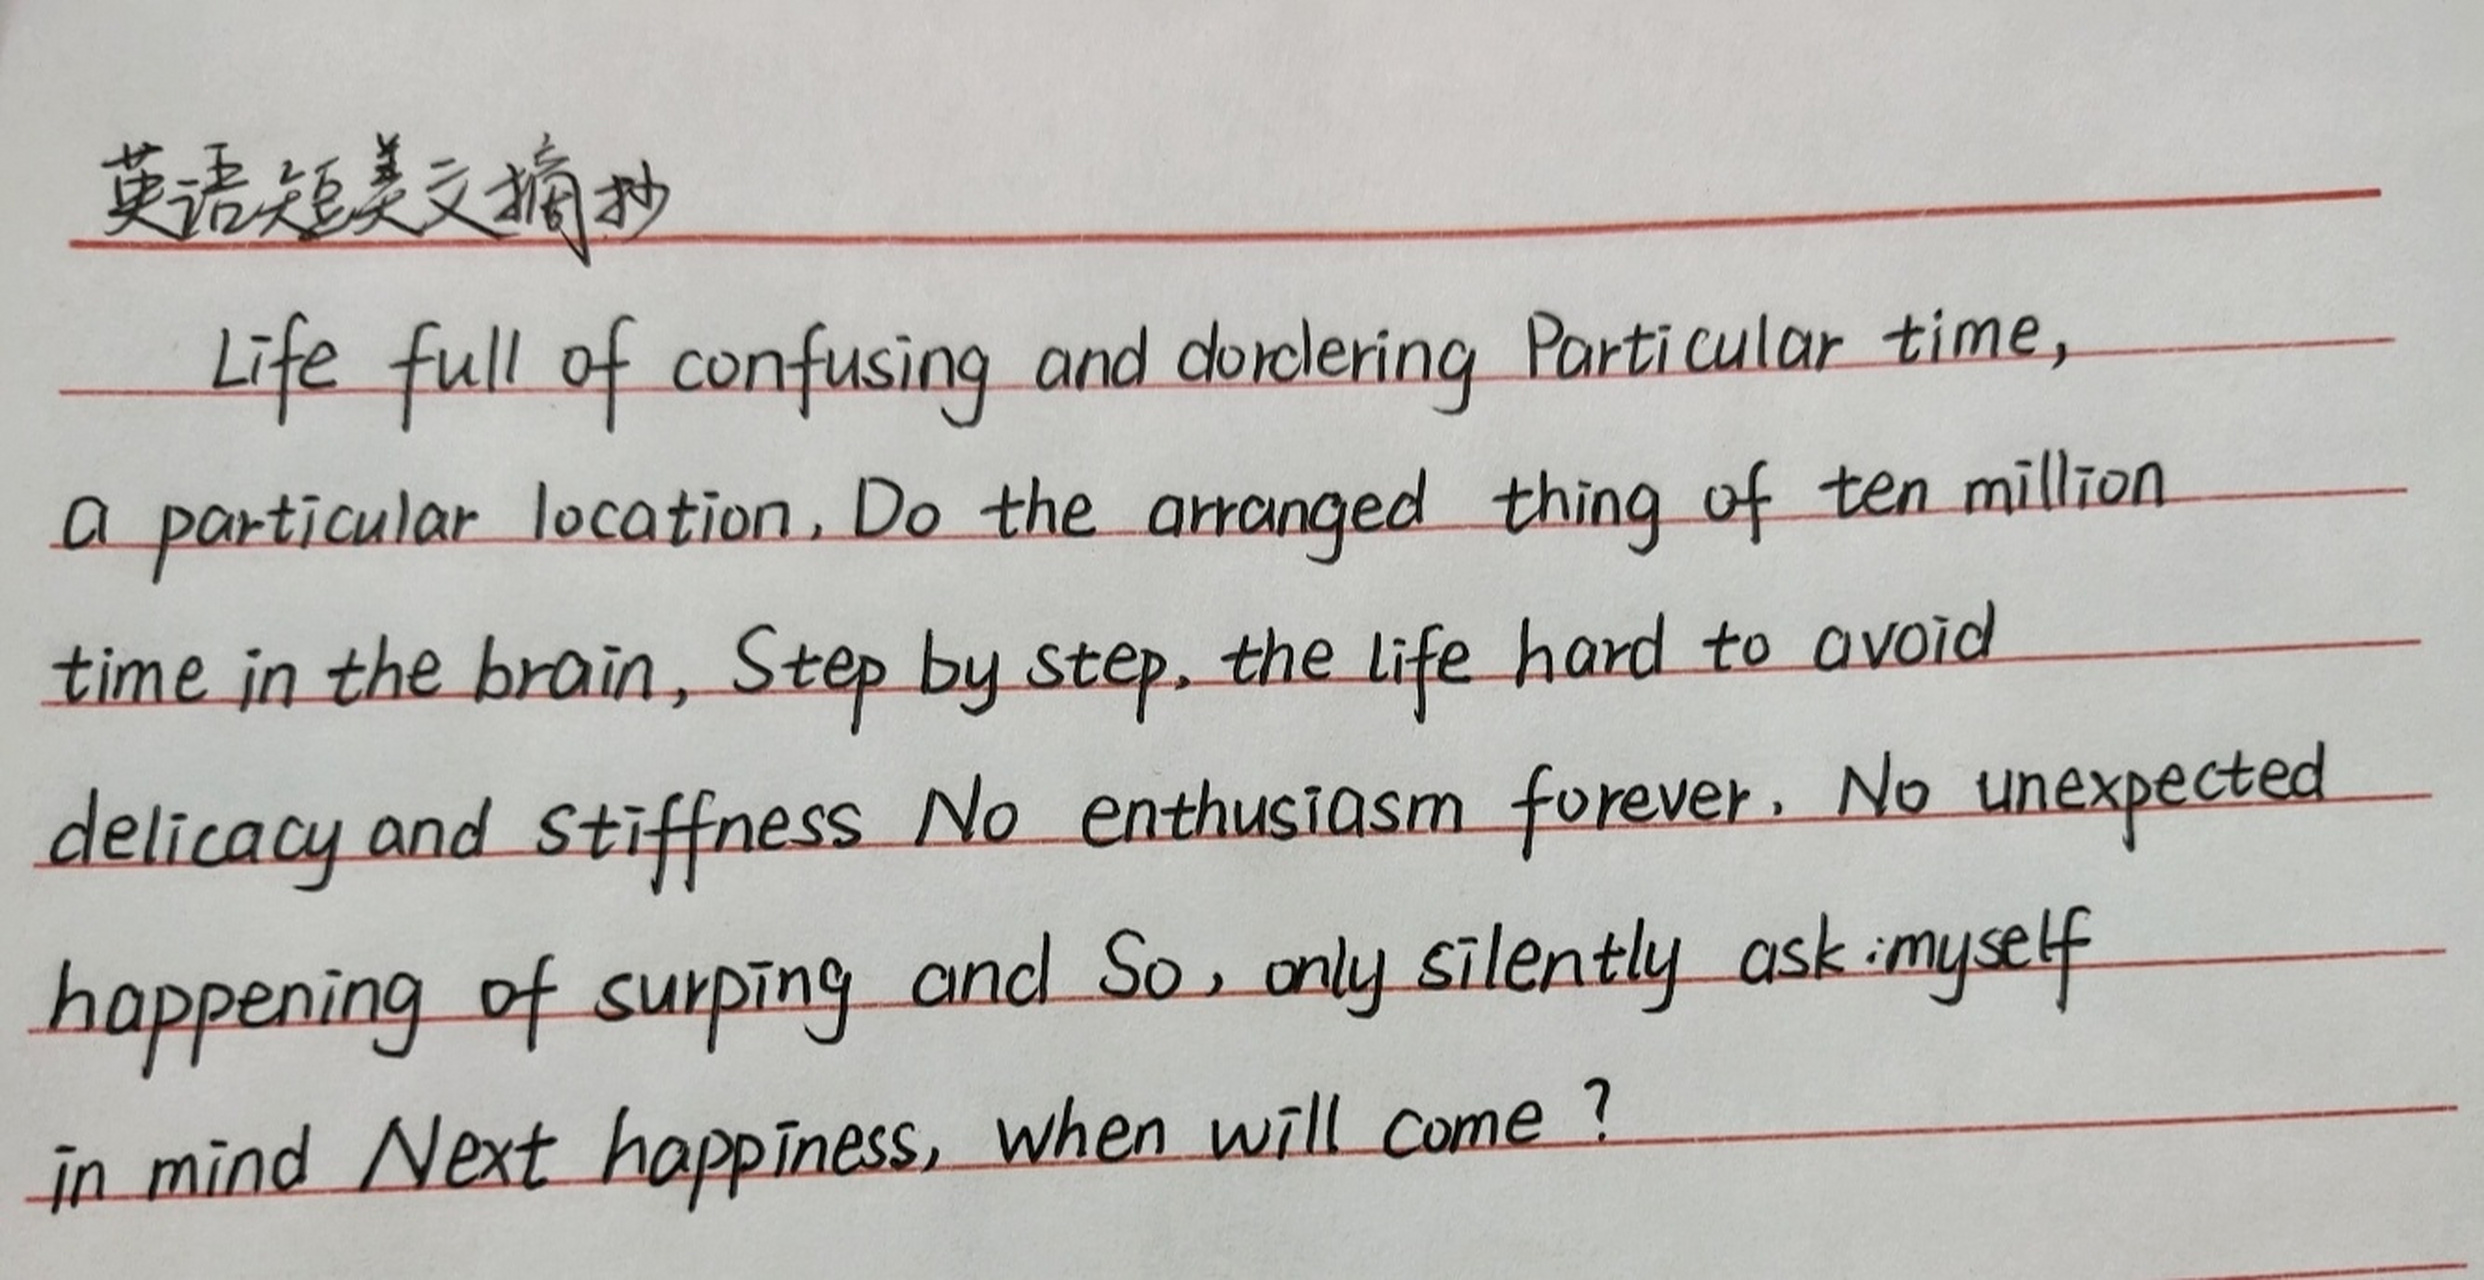 英语短美文摘抄
Life full of confusing and dordering Particular time,
a particular location. Do the arranged thing of ten million
time in the brain, Step by step. the life hard to avoid
delicacy and stiffness No enthusiasm forever. No unexpected
happening of surping and So, only silently ask :myself
in mind Next happiness, when will come ?